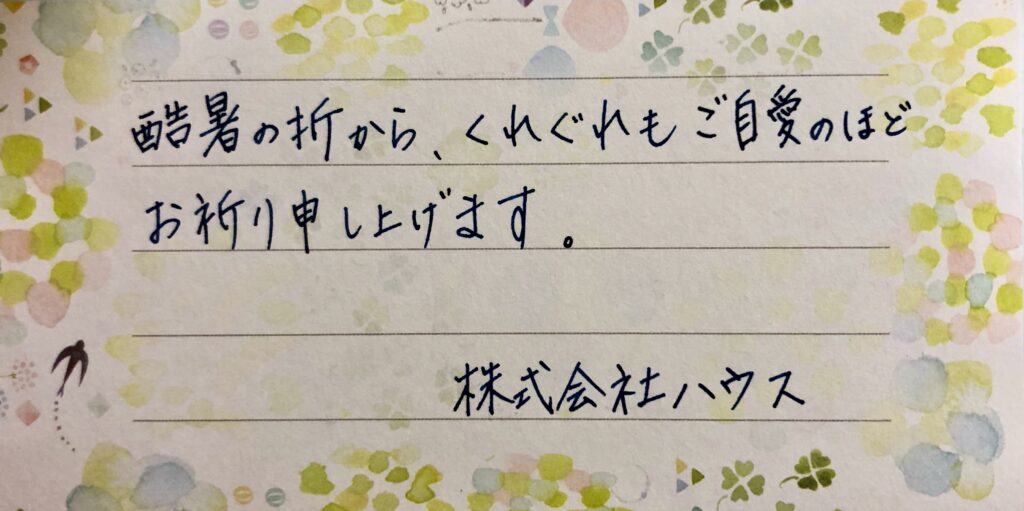 酷暑の折から、くれぐれもご自愛のほど
お祈り申し上げます。
株式会社ハウス